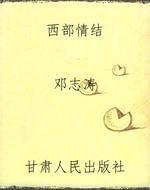 西部情结
邓志涛
甘肃人民出版社